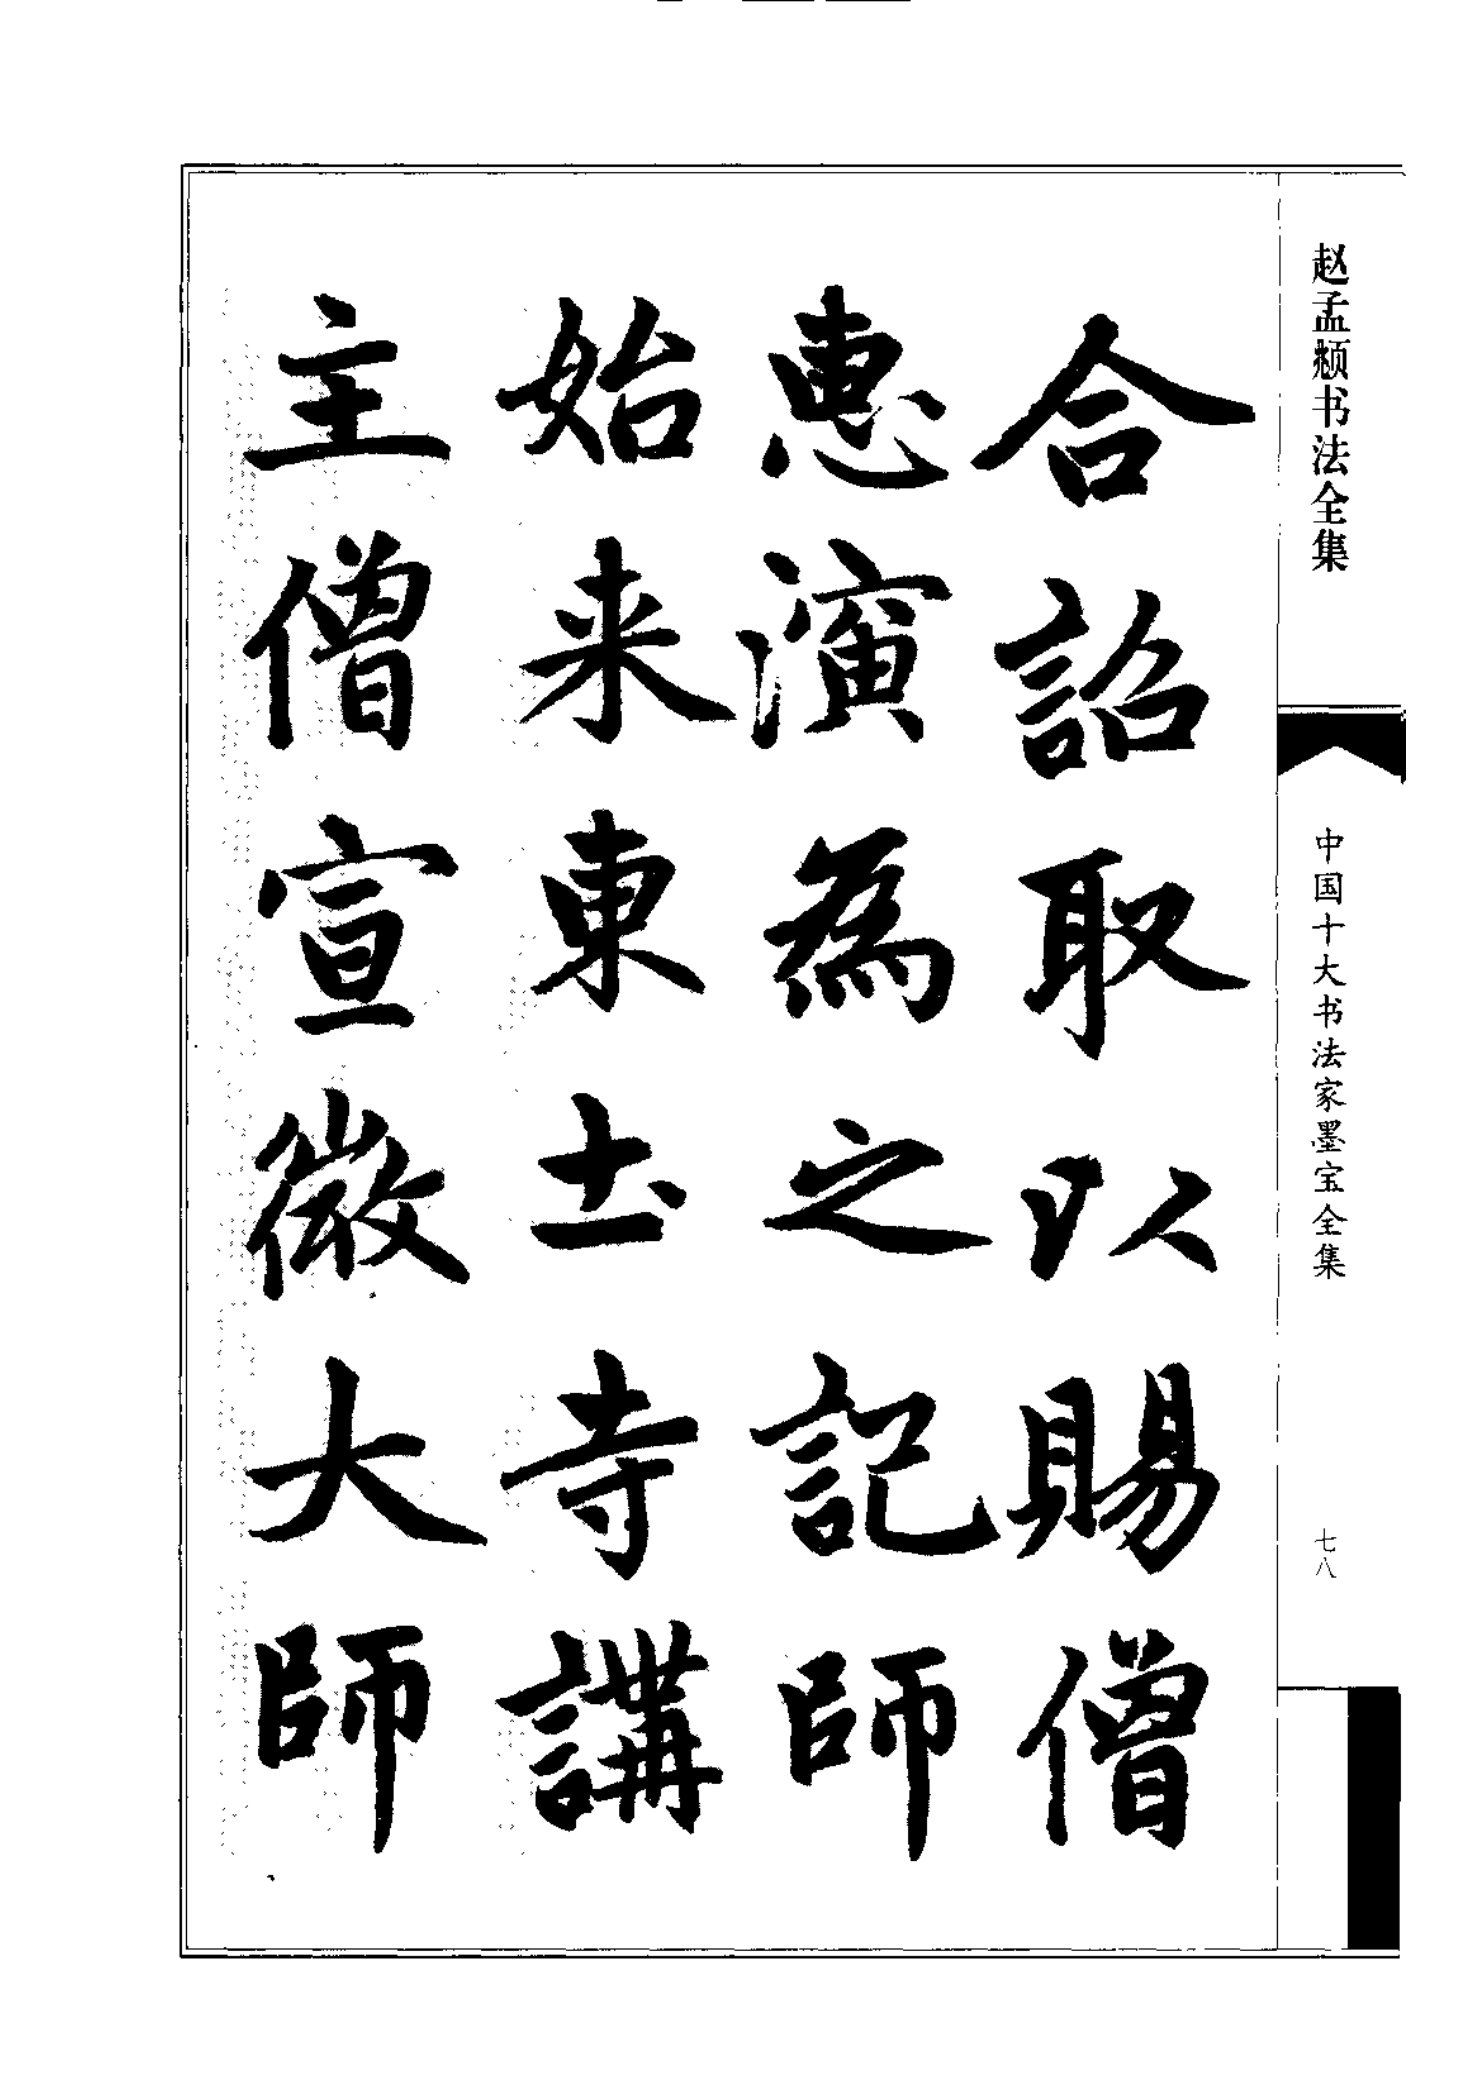 赵孟頫书法全集
中国十大书法家墨宝全集
七八
合詔取以賜僧
惠演為之記師
始来東土寺講
主僧宣微大師